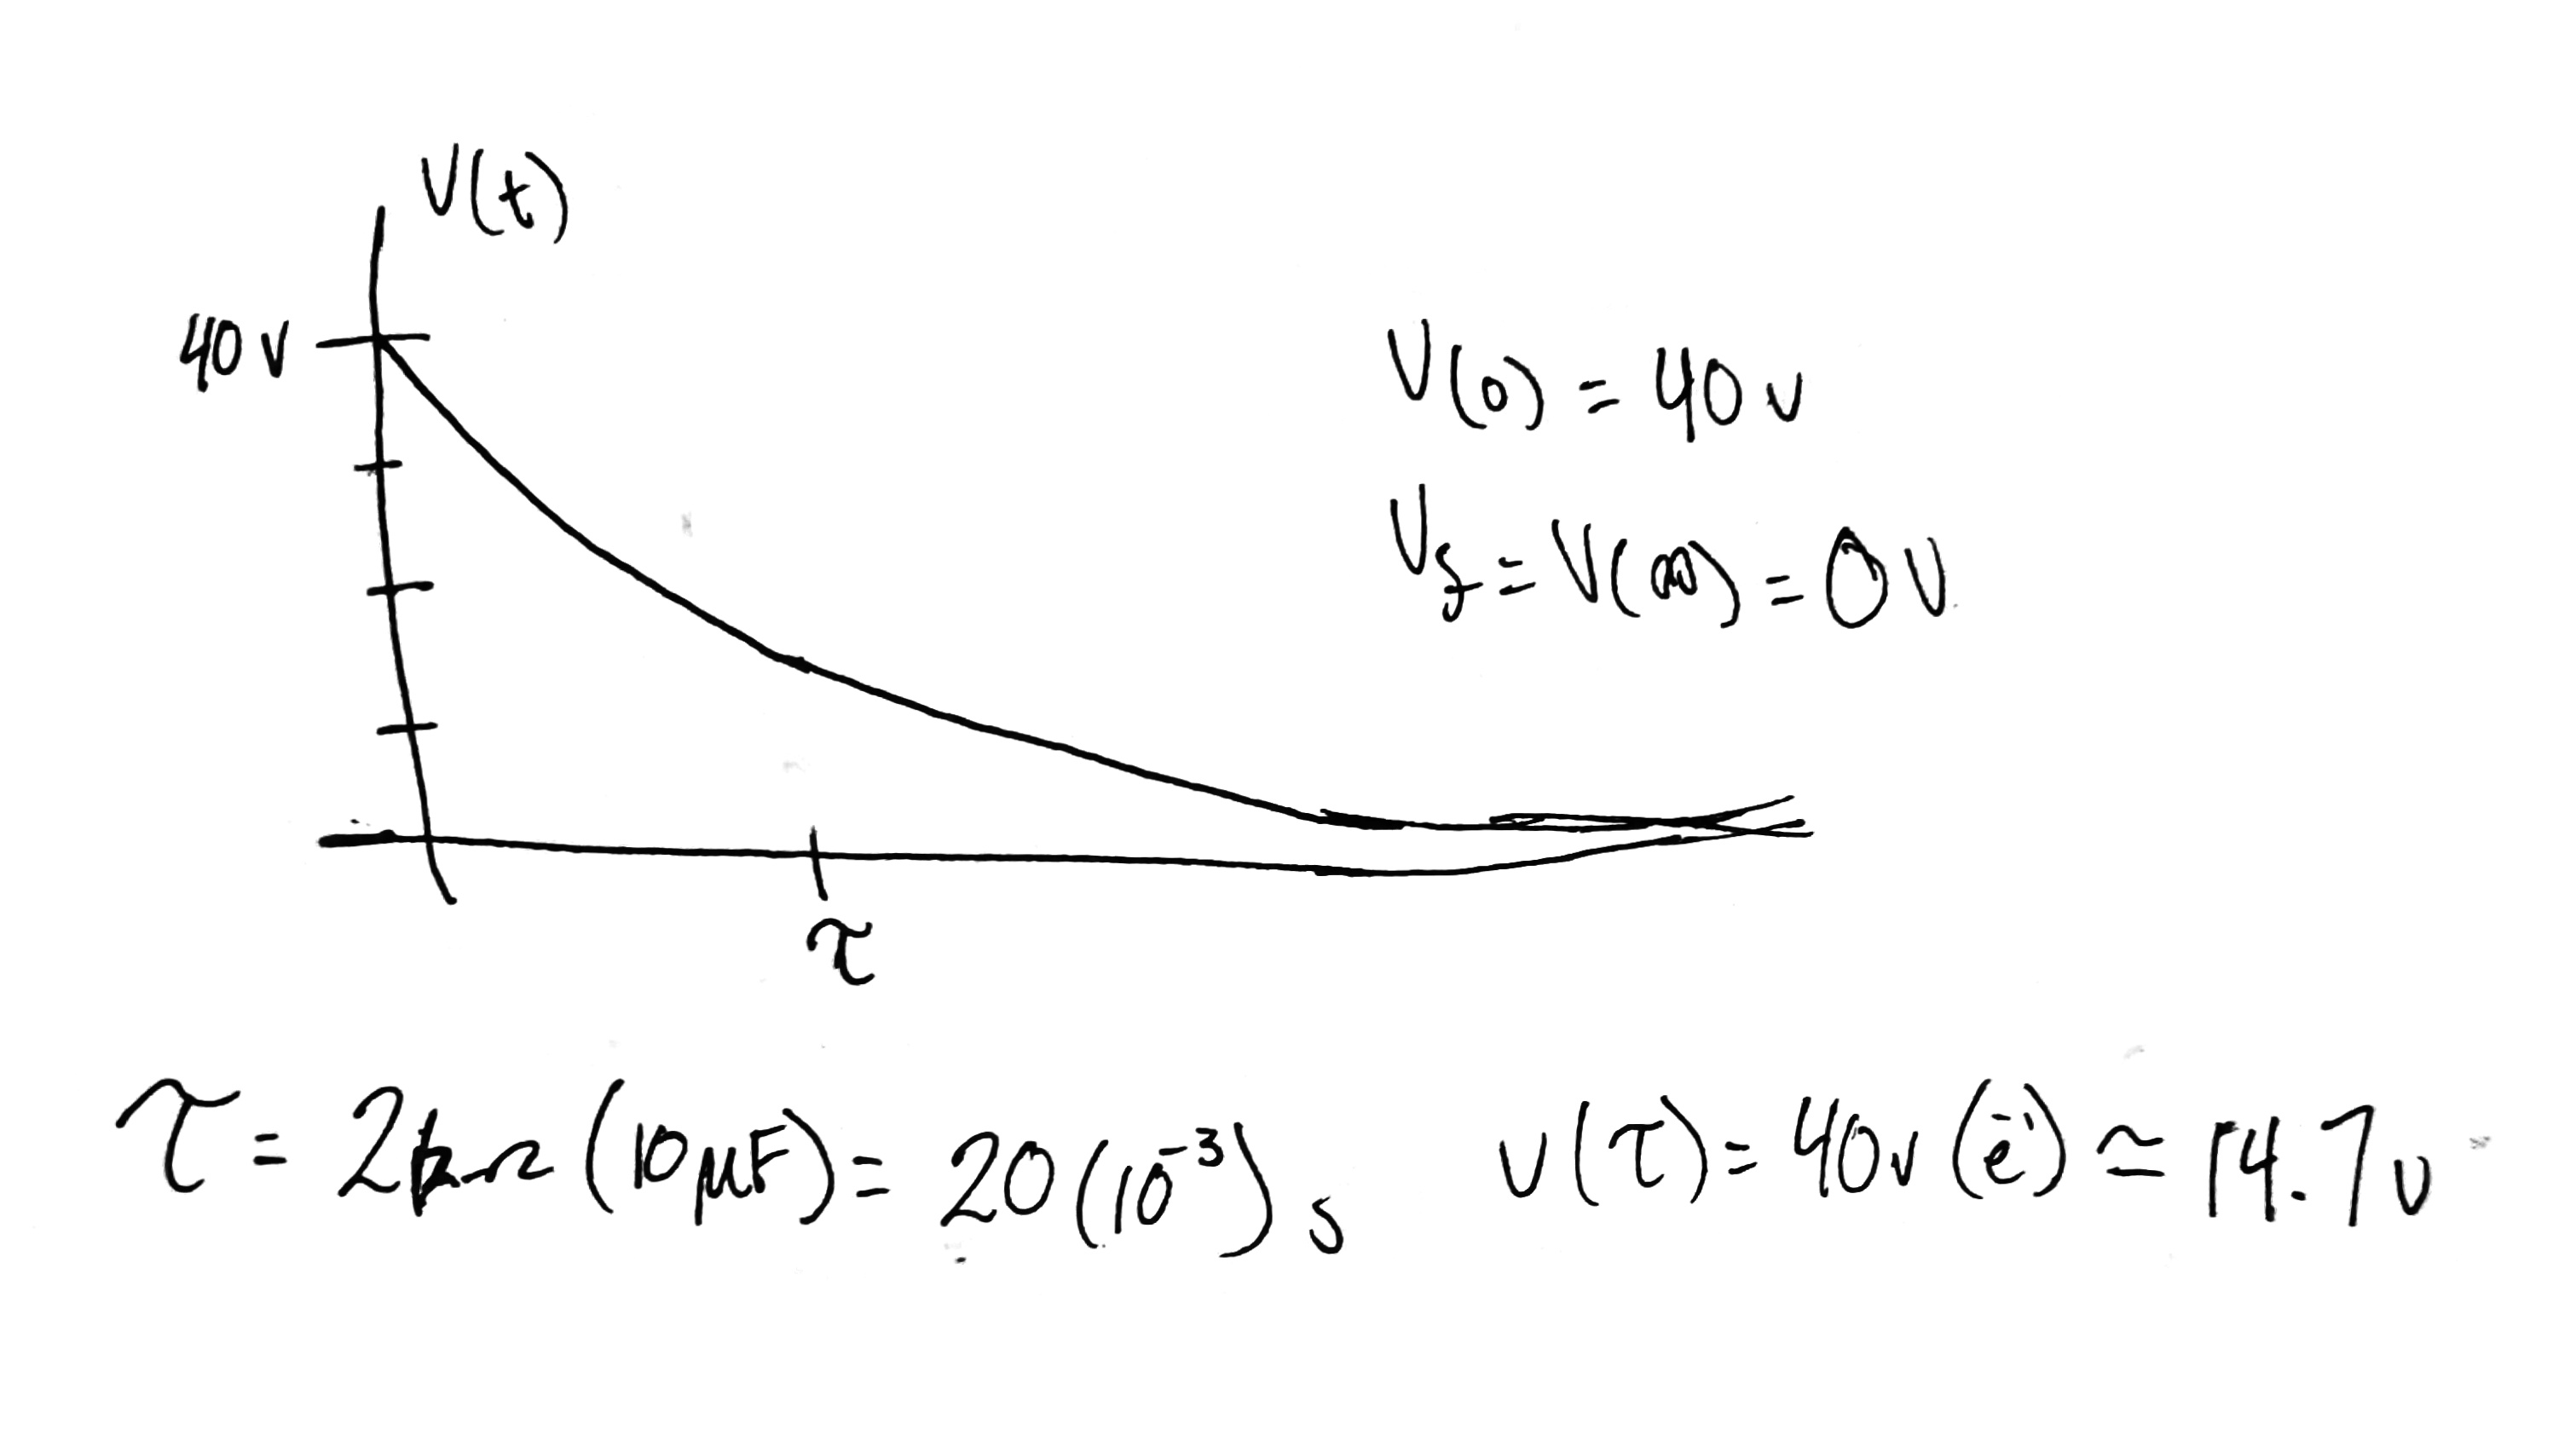 V(t)
40 V
V(0) = 40 V
V_f = V(∞) = 0 V
τ
τ = 2kΩ (10 μF) = 20 (10⁻³) s
v(τ) = 40v (e⁻¹) ≃ 14.7 v